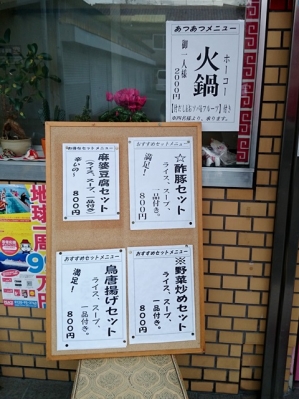 あつあつメニュー
火鍋
ホーコー
御一人様
2000円
おすすめセットメニュー
☆酢豚セット
ライス、スープ、
一品付き。
満足!
800円
麻婆豆腐セット
(ライス、スープ、
一品付き)
辛いの〜
800円
おすすめセットメニュー
※野菜炒めセット
ライス、スープ、
一品付き。
800円
おすすめセットメニュー
鳥唐揚げセット
ライス、スープ、
一品付き。
満足!
800円
地球一周